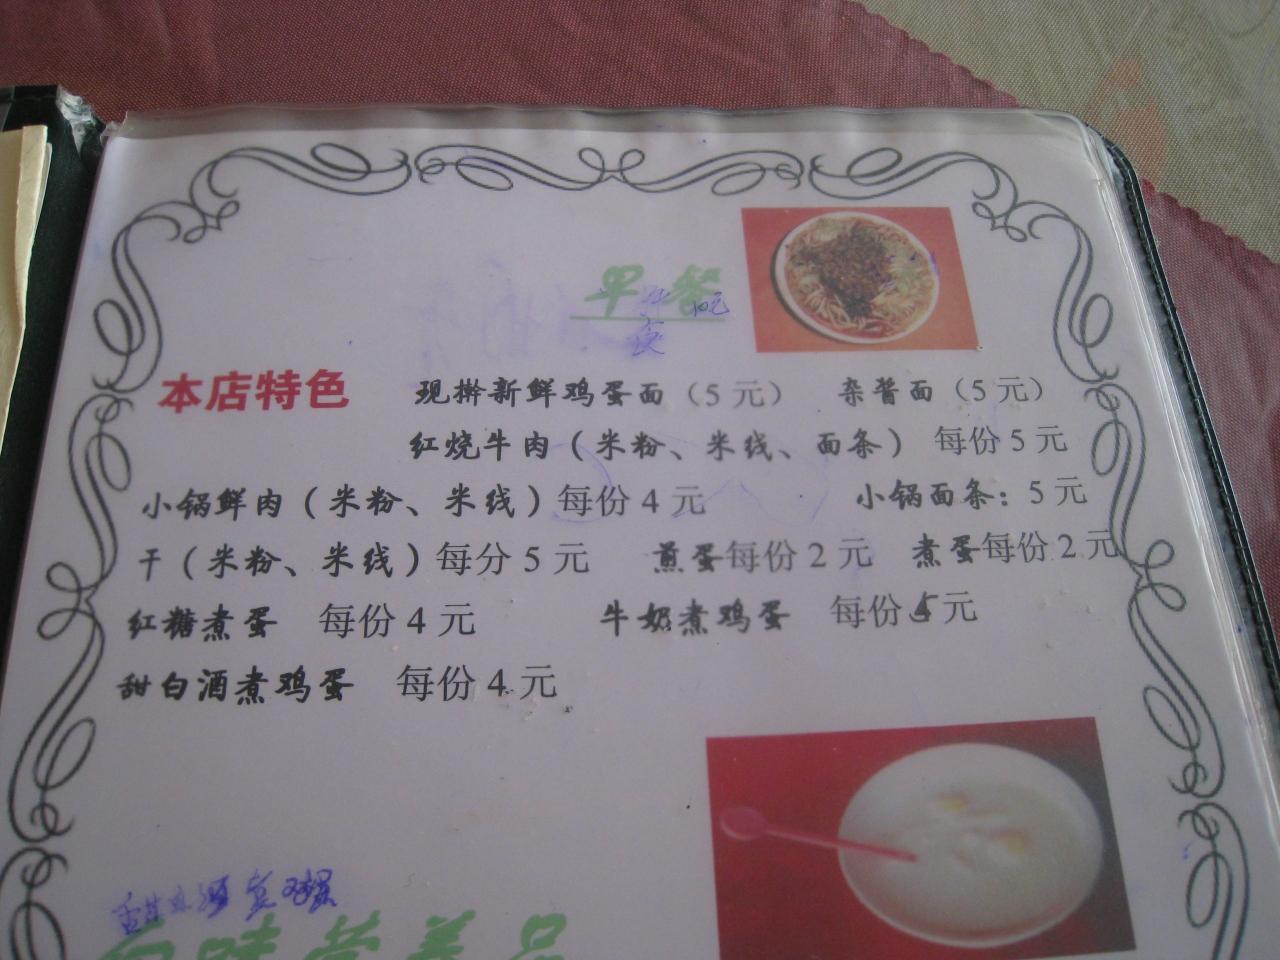 早餐
本店特色 现擀新鲜鸡蛋面（5 元） 杂酱面（5 元）
红烧牛肉（米粉、米线、面条） 每份 5 元
小锅鲜肉（米粉、米线）每份 4 元 小锅面条：5 元
干（米粉、米线）每分 5 元 煎蛋每份 2 元 煮蛋每份 2 元
红糖煮蛋 每份 4 元 牛奶煮鸡蛋 每份 5 元
甜白酒煮鸡蛋 每份 4 元
味营养品